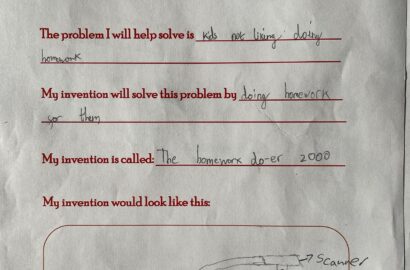 The problem I will help solve is kids not liking doing
homework
My invention will solve this problem by doing homework
for them
My invention is called: The homework do-er 2000
My invention would look like this:
→ Scanner